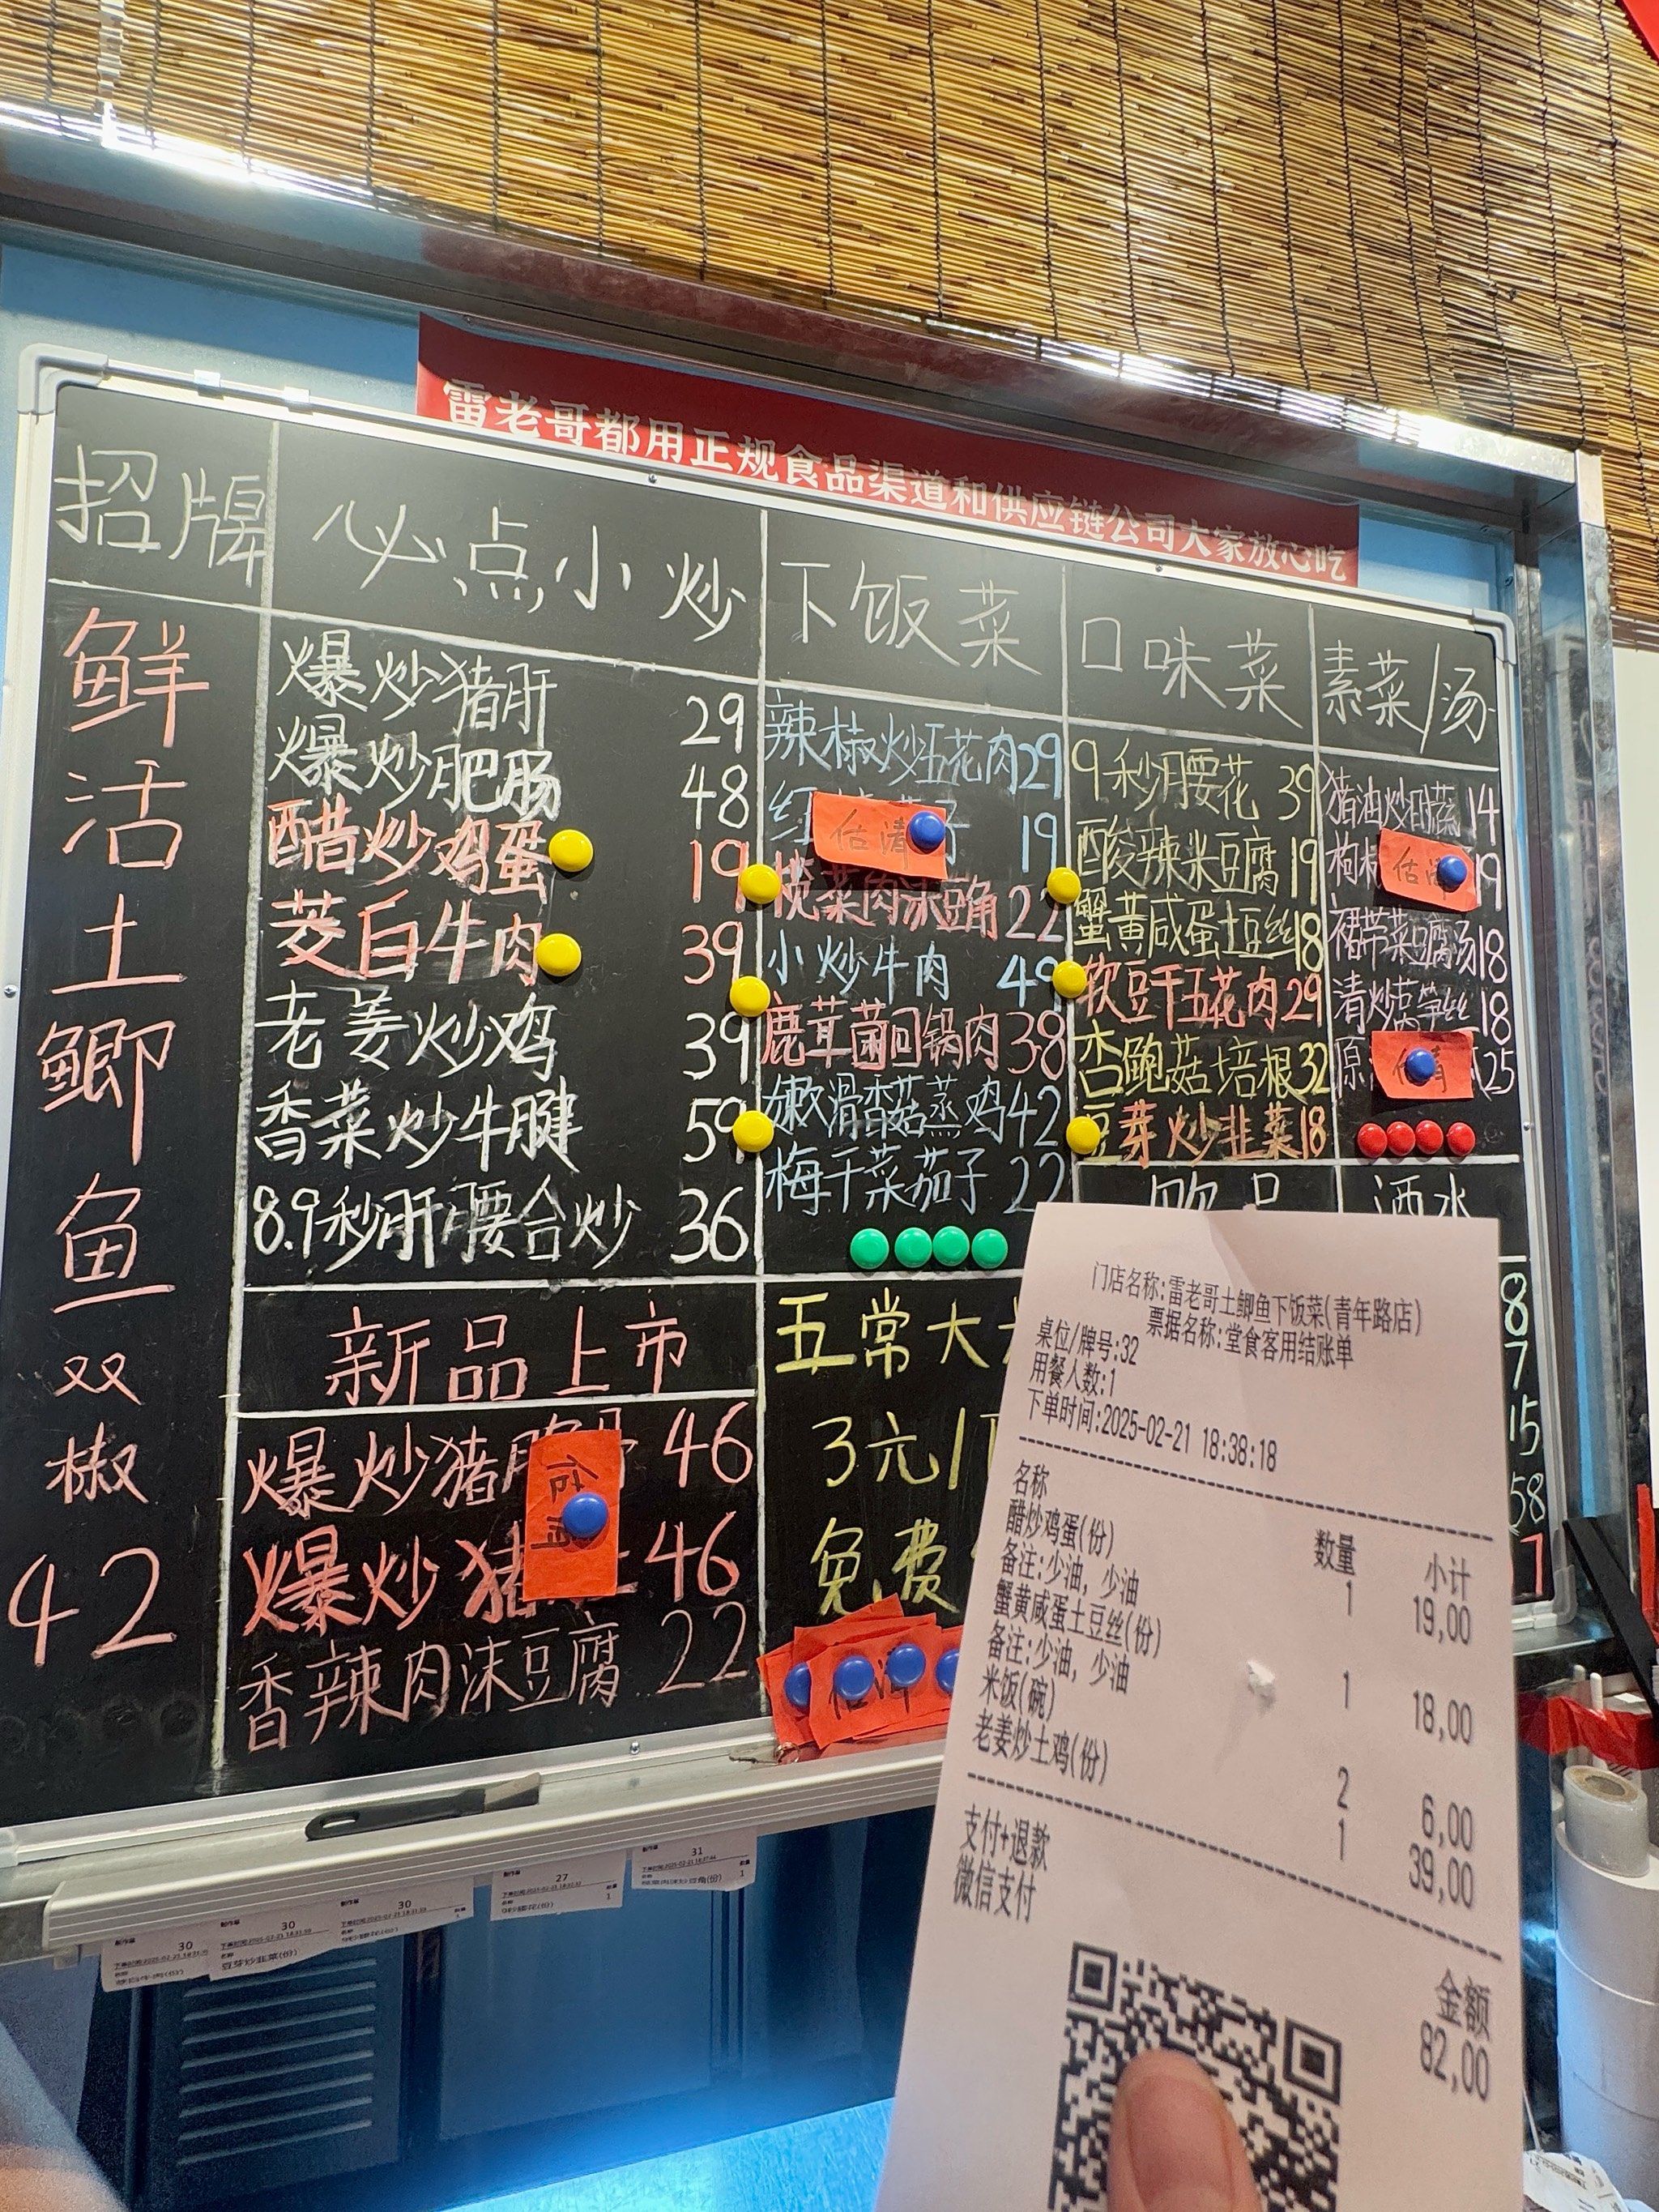 雷老哥都用正规食品渠道和供应链公司大家放心吃
招牌
鲜活土鲫鱼
双椒
42
必点小炒
爆炒猪肝 29
爆炒肥肠 48
醋炒鸡蛋 19
茭白牛肉 39
老姜炒鸡 39
香菜炒牛腱 59
8.9秒肝腰合炒 36
新品上市
爆炒猪 46
爆炒猪 46
香辣肉沫豆腐 22
下饭菜
辣椒炒五花肉 29
红 子 19
估清
榄菜肉沫豆角 22
小炒牛肉 49
鹿茸菌回锅肉 38
嫩滑香菇蒸鸡 42
梅干菜茄子 22
五常大
3元/
免费
估清
口味菜
9秒腰花 39
酸辣米豆腐 19
蟹黄咸蛋土豆丝 18
软豆干五花肉 29
杏鲍菇培根 32
豆芽炒韭菜 18
素菜/汤
猪油炒时蔬 14
枸 19
估清
裙带菜豆腐汤 18
清炒莴笋丝 18
原 25
估清
酒水
8
7
15
58
估清
门店名称:雷老哥土鲫鱼下饭菜(青年路店)
票据名称:堂食客用结账单
桌位/牌号:32
用餐人数:1
下单时间:2025-02-21 18:38:18
名称 数量 小计
醋炒鸡蛋(份) 1 19,00
备注:少油, 少油
蟹黄咸蛋土豆丝(份) 1 18,00
备注:少油, 少油
米饭(碗) 2 6,00
老姜炒土鸡(份) 1 39,00
支付+退款 金额
微信支付 82,00
30
30
豆芽炒韭菜(份)
30
27
31